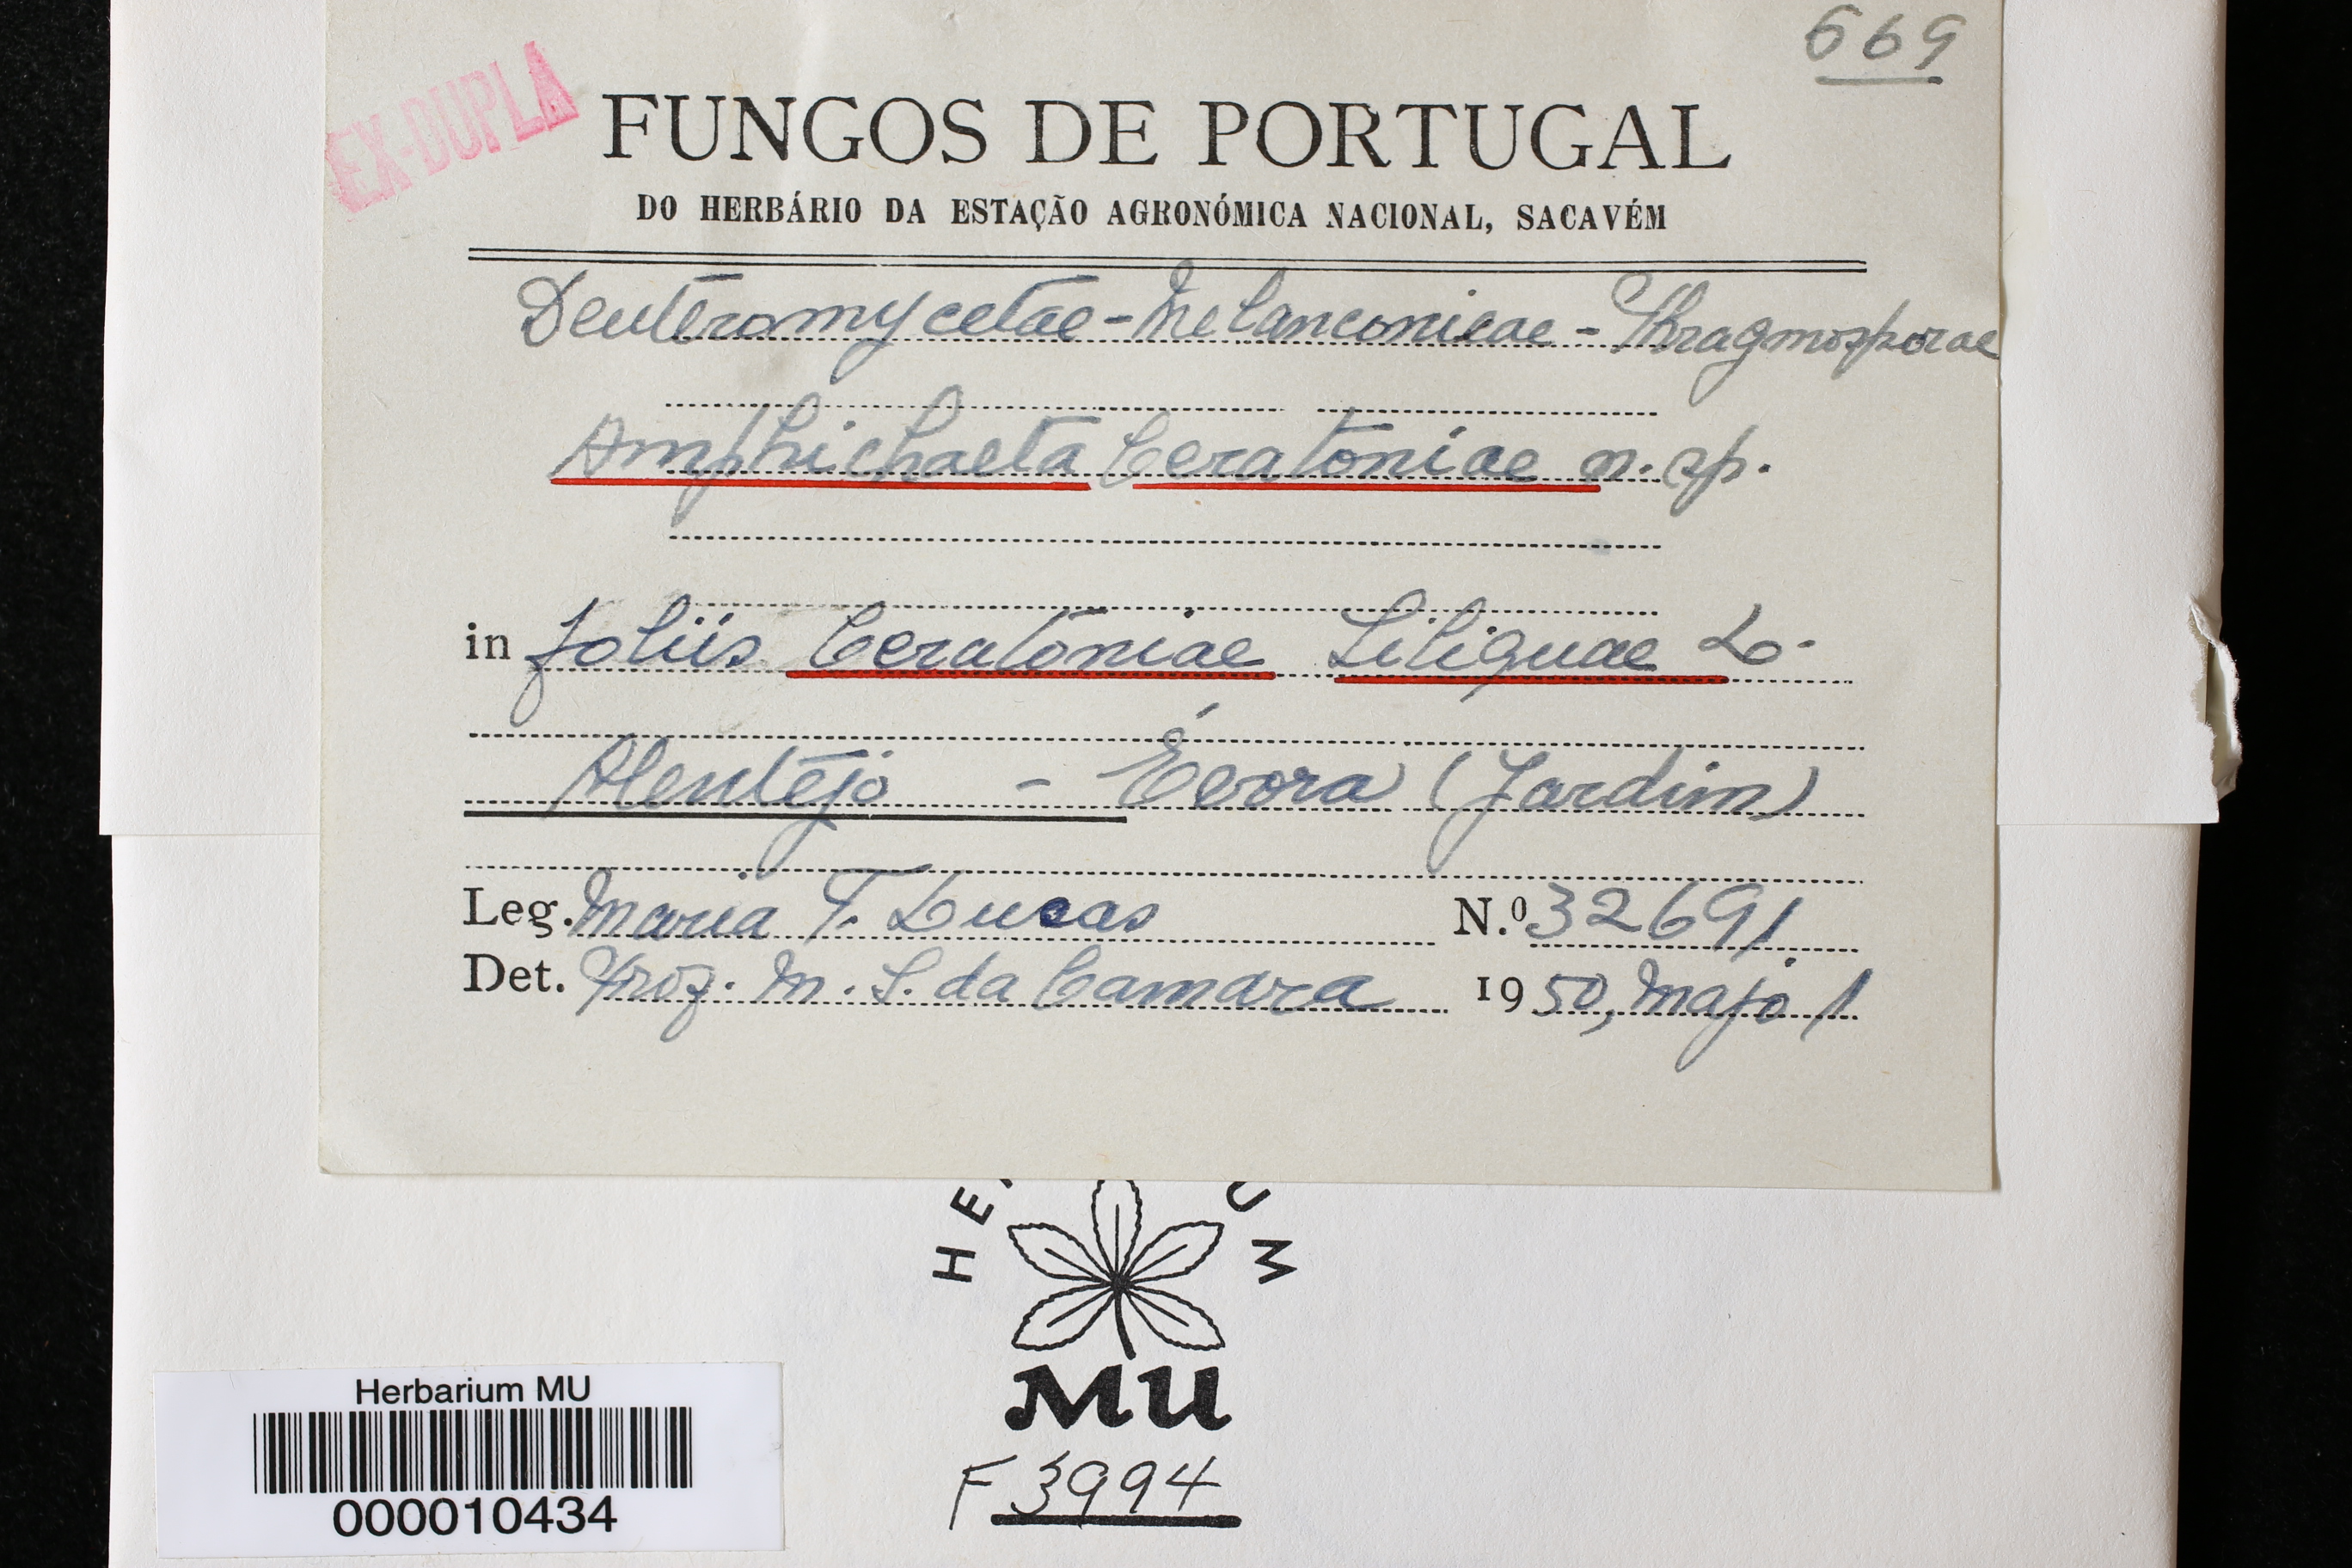 669
EX-DUPLA
FUNGOS DE PORTUGAL
DO HERBÁRIO DA ESTAÇÃO AGRONÓMICA NACIONAL, SACAVÉM
Deuteromycetae - Melanconieae - Phragmosporae
Amphichaeta Ceratoniae n. sp.
in foliis Ceratoniae Siliquae L.
Alentejo - Évora (Jardim)
Leg. Maria T. Lucas N.º 32691
Det. Prof. M. S. da Camara 1950, Majo 1
HE UM
MU
F 3994
Herbarium MU
000010434